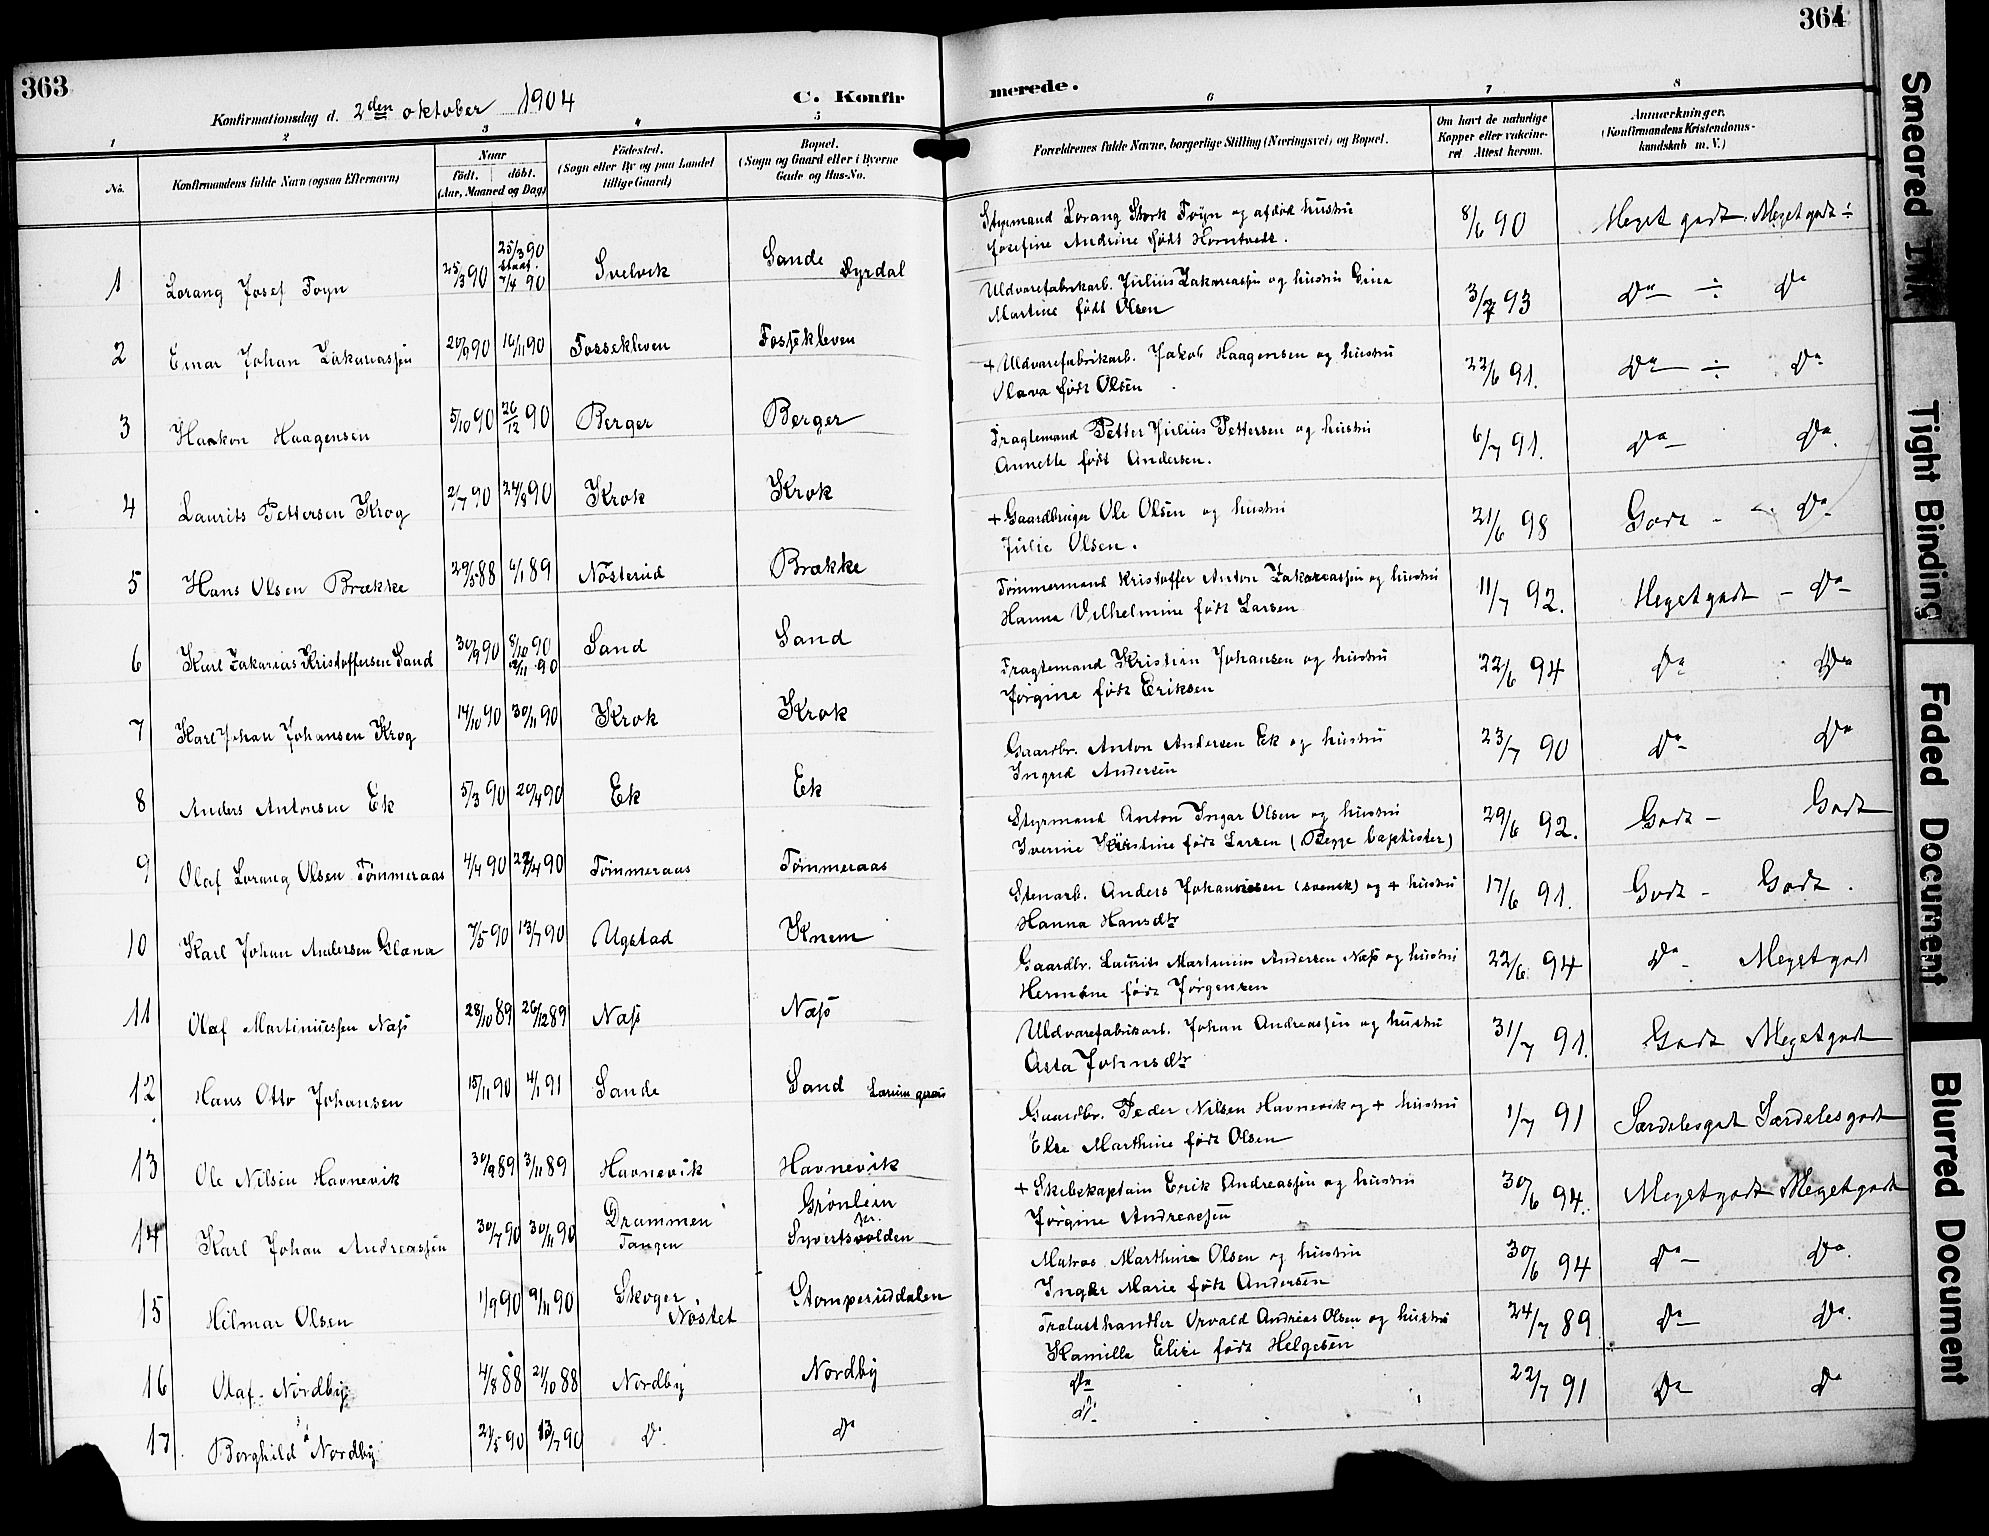 363
Konfirmationsdag d. 2den oktober 1904
C. Konfir
1
2
3
4
5
No.
Konfirmandens fulde Navn (ogsaa Efternavn)
Naar
født. døbt.
(Aar, Maaned og Dag)
Fødested.
(Sogn eller By og paa Landet
tillige Gaard)
Bopæl.
(Sogn og Gaard eller i Byerne
Gade og Hus-No.
1 Lorang Josef Foyn 25/3 90 25/3 90 7/4 90 Svelvik Sande Dyrdal
2 Einar Johan Zakariassen 20/9 90 16/11 90 Fossekleven Fossekleven
3 Haakon Haagensen 5/10 90 26/12 90 Berger Berger
4 Laurits Pettersen Krog 2/7 90 24/8 90 Krok Krok
5 Hans Olsen Brække 29/5 88 6/1 89 Nøsterud Brække
6 Karl Zakarias Kristoffersen Sand 30/9 90 8/10 90 Sand Sand
7 Karl Johan Johansen Krog 14/10 90 30/11 90 Krok Krok
8 Anders Antonsen Ek 5/3 90 20/4 90 Ek Ek
9 Olaf Lorang Olsen Tømmeraas 4/4 90 27/4 90 Tømmeraas Tømmeraas
10 Karl Johan Andersen Glæna 7/5 90 13/7 90 Ugstad Knem
11 Olaf Martiniussen Næss 28/10 89 26/12 89 Næss Næss
12 Hans Otto Johansen 15/11 90 4/1 91 Sande Sand
13 Ole Nilsen Havnevik 30/9 89 3/11 89 Havnevik Havnevik
14 Karl Johan Andreassen 30/7 90 30/11 90 Drammen Tangen Grønlein Syvertsvolden
15 Hilmar Olsen 1/9 90 9/11 90 Skoger Nøstet Stomperuddalen
16 Olaf Nordby 4/8 88 21/10 88 Nordby Nordby
17 Borghild Nordby 27/5 90 13/7 90 do do
364
merede.
6
7
8
Forældrenes fulde Navne, borgerlige Stilling (Næringsvei) og Bopæl.
Om havt de naturlige
Kopper eller vakcine-
ret Attest herom.
Anmærkninger.
(Konfirmandens Kristendoms-
kundskab m. V.)
Styrmand Lorang Stork Foyn og afdød hustru 8/6 90 Meget godt. Meget godt ÷
Josefine Andrine født Horntvedt.
Uldvarefabrikarb. Julius Zakariassen og hustru Gina 3/7 93 Do ÷ Do
Martine født Olsen
+ Uldvarefabrikarb. Jakob Haagensen og hustru 22/6 91. Do ÷ Do
Olava født Olsen
Fragtemand Petter Julius Pettersen og hustru 6/7 91. Do Do
Annette født Andersen.
+ Gaardbruger Ole Olsen og hustru 21/6 98 Godt - Do
Julie Olsen.
Tømmermand Kristoffer Anton Zakariassen og hustru 11/7 92. Meget godt - Do
Hanna Vilhelmine født Larsen
Fragtemand Kristian Johansen og hustru 22/6 94 Do Do
Jørgine født Eriksen
Gaardbr. Anton Andersen Ek og hustru 23/7 90 Do Do
Ingrid Andersen
Styrmand Anton Ingar Olsen og hustru 29/6 92. Godt - Godt
Iverine Kristine født Larsen (Begge baptister)
Stenarb. Anders Johannesen (svensk) og + hustru 17/6 91. Godt - Godt.
Hanna Hansdtr
Gaardbr. Laurits Martinius Andersen Næss og hustru 22/6 94 Do - Meget godt
Hermine født Jørgensen
Uldvarefabrikarb. Johan Andreassen og hustru 31/7 91. Godt Meget godt
Asta Johnsdtr
Gaardbr. Peder Nilsen Havnevik og + hustru 1/7 91 Særdeles godt Særdeles godt
Else Marthine født Olsen
+ Skibskaptain Erik Andreassen og hustru 30/6 94. Meget godt Meget godt
Jørgine Andreassen
Matros Marthin Olsen og hustru 30/6 94 Do Do.
Inger Marie født Andersen
Trælasthandler Orvald Andreas Olsen og hustru 24/7 89 Do Do.
Kamilla Elise født Helgesen
Do 22/7 91 Do Do
do
Smeared Ink
Tight Binding
Faded Document
Blurred Document